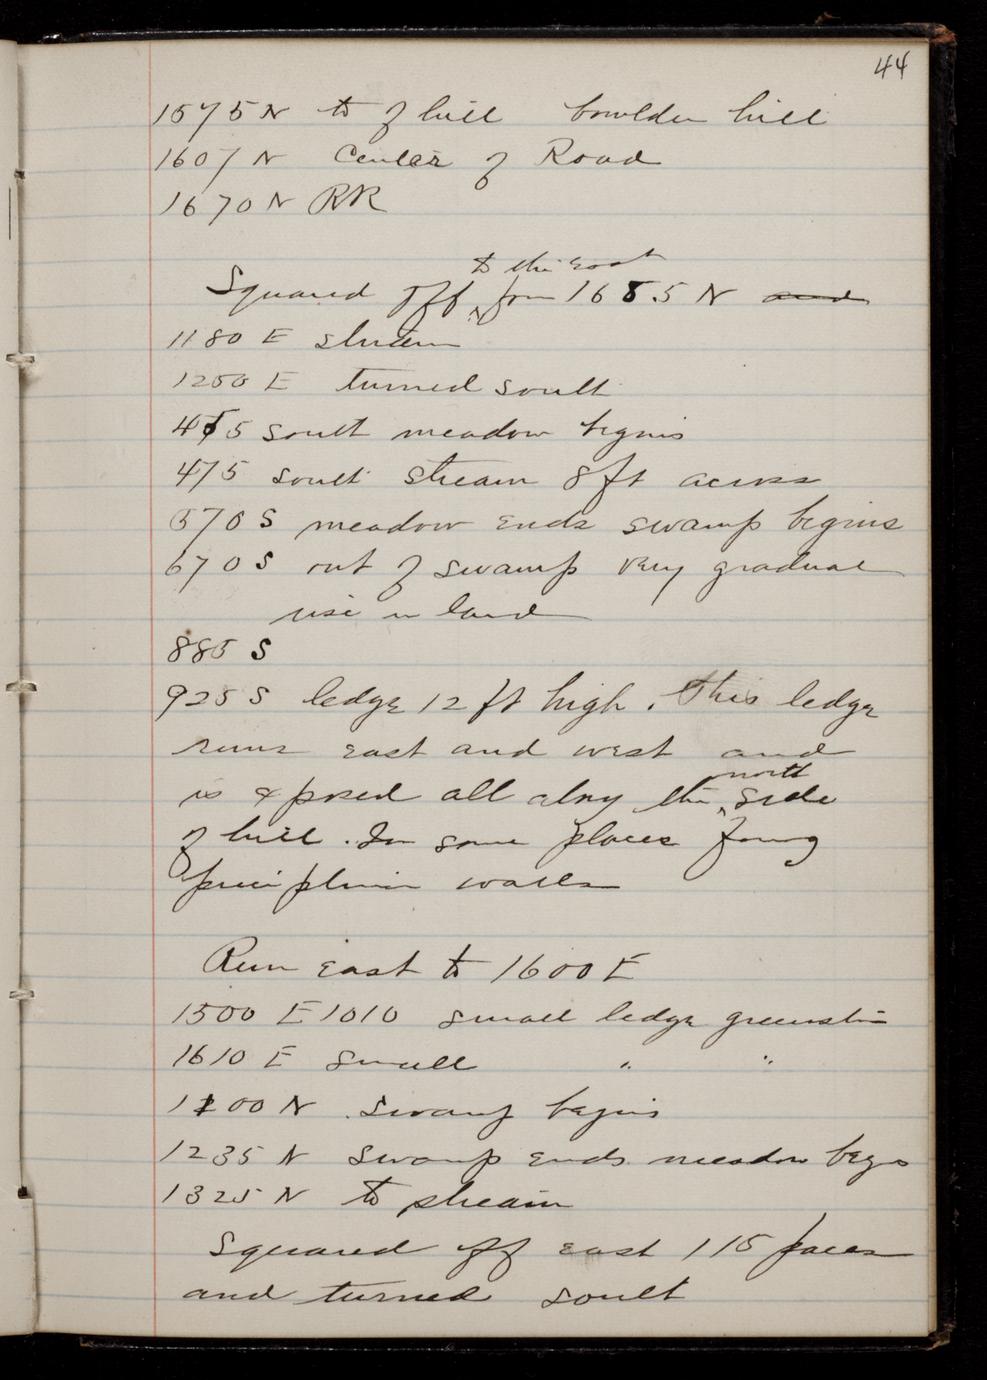 44
1575 N to of hill boulder hill
1607 N Center of Road
1670 N RR
to the east
Squared off from 1655 N and
1180 E stream
1250 E turned south
455 south meadow begins
475 south stream 8 ft across
570 S meadow ends swamp begins
670 S out of swamp very gradual
rise in land
885 S
925 S ledge 12 ft high. This ledge
runs east and west and
north
is exposed all along the side
of hill. In some places
walls
Run east to 1600 E
1500 E 1010 small ledge greenstone
1610 E small " "
1100 N swamp begins
1235 N swamp ends meadow begins
1325 N to stream
Squared off east 115 paces
and turned south